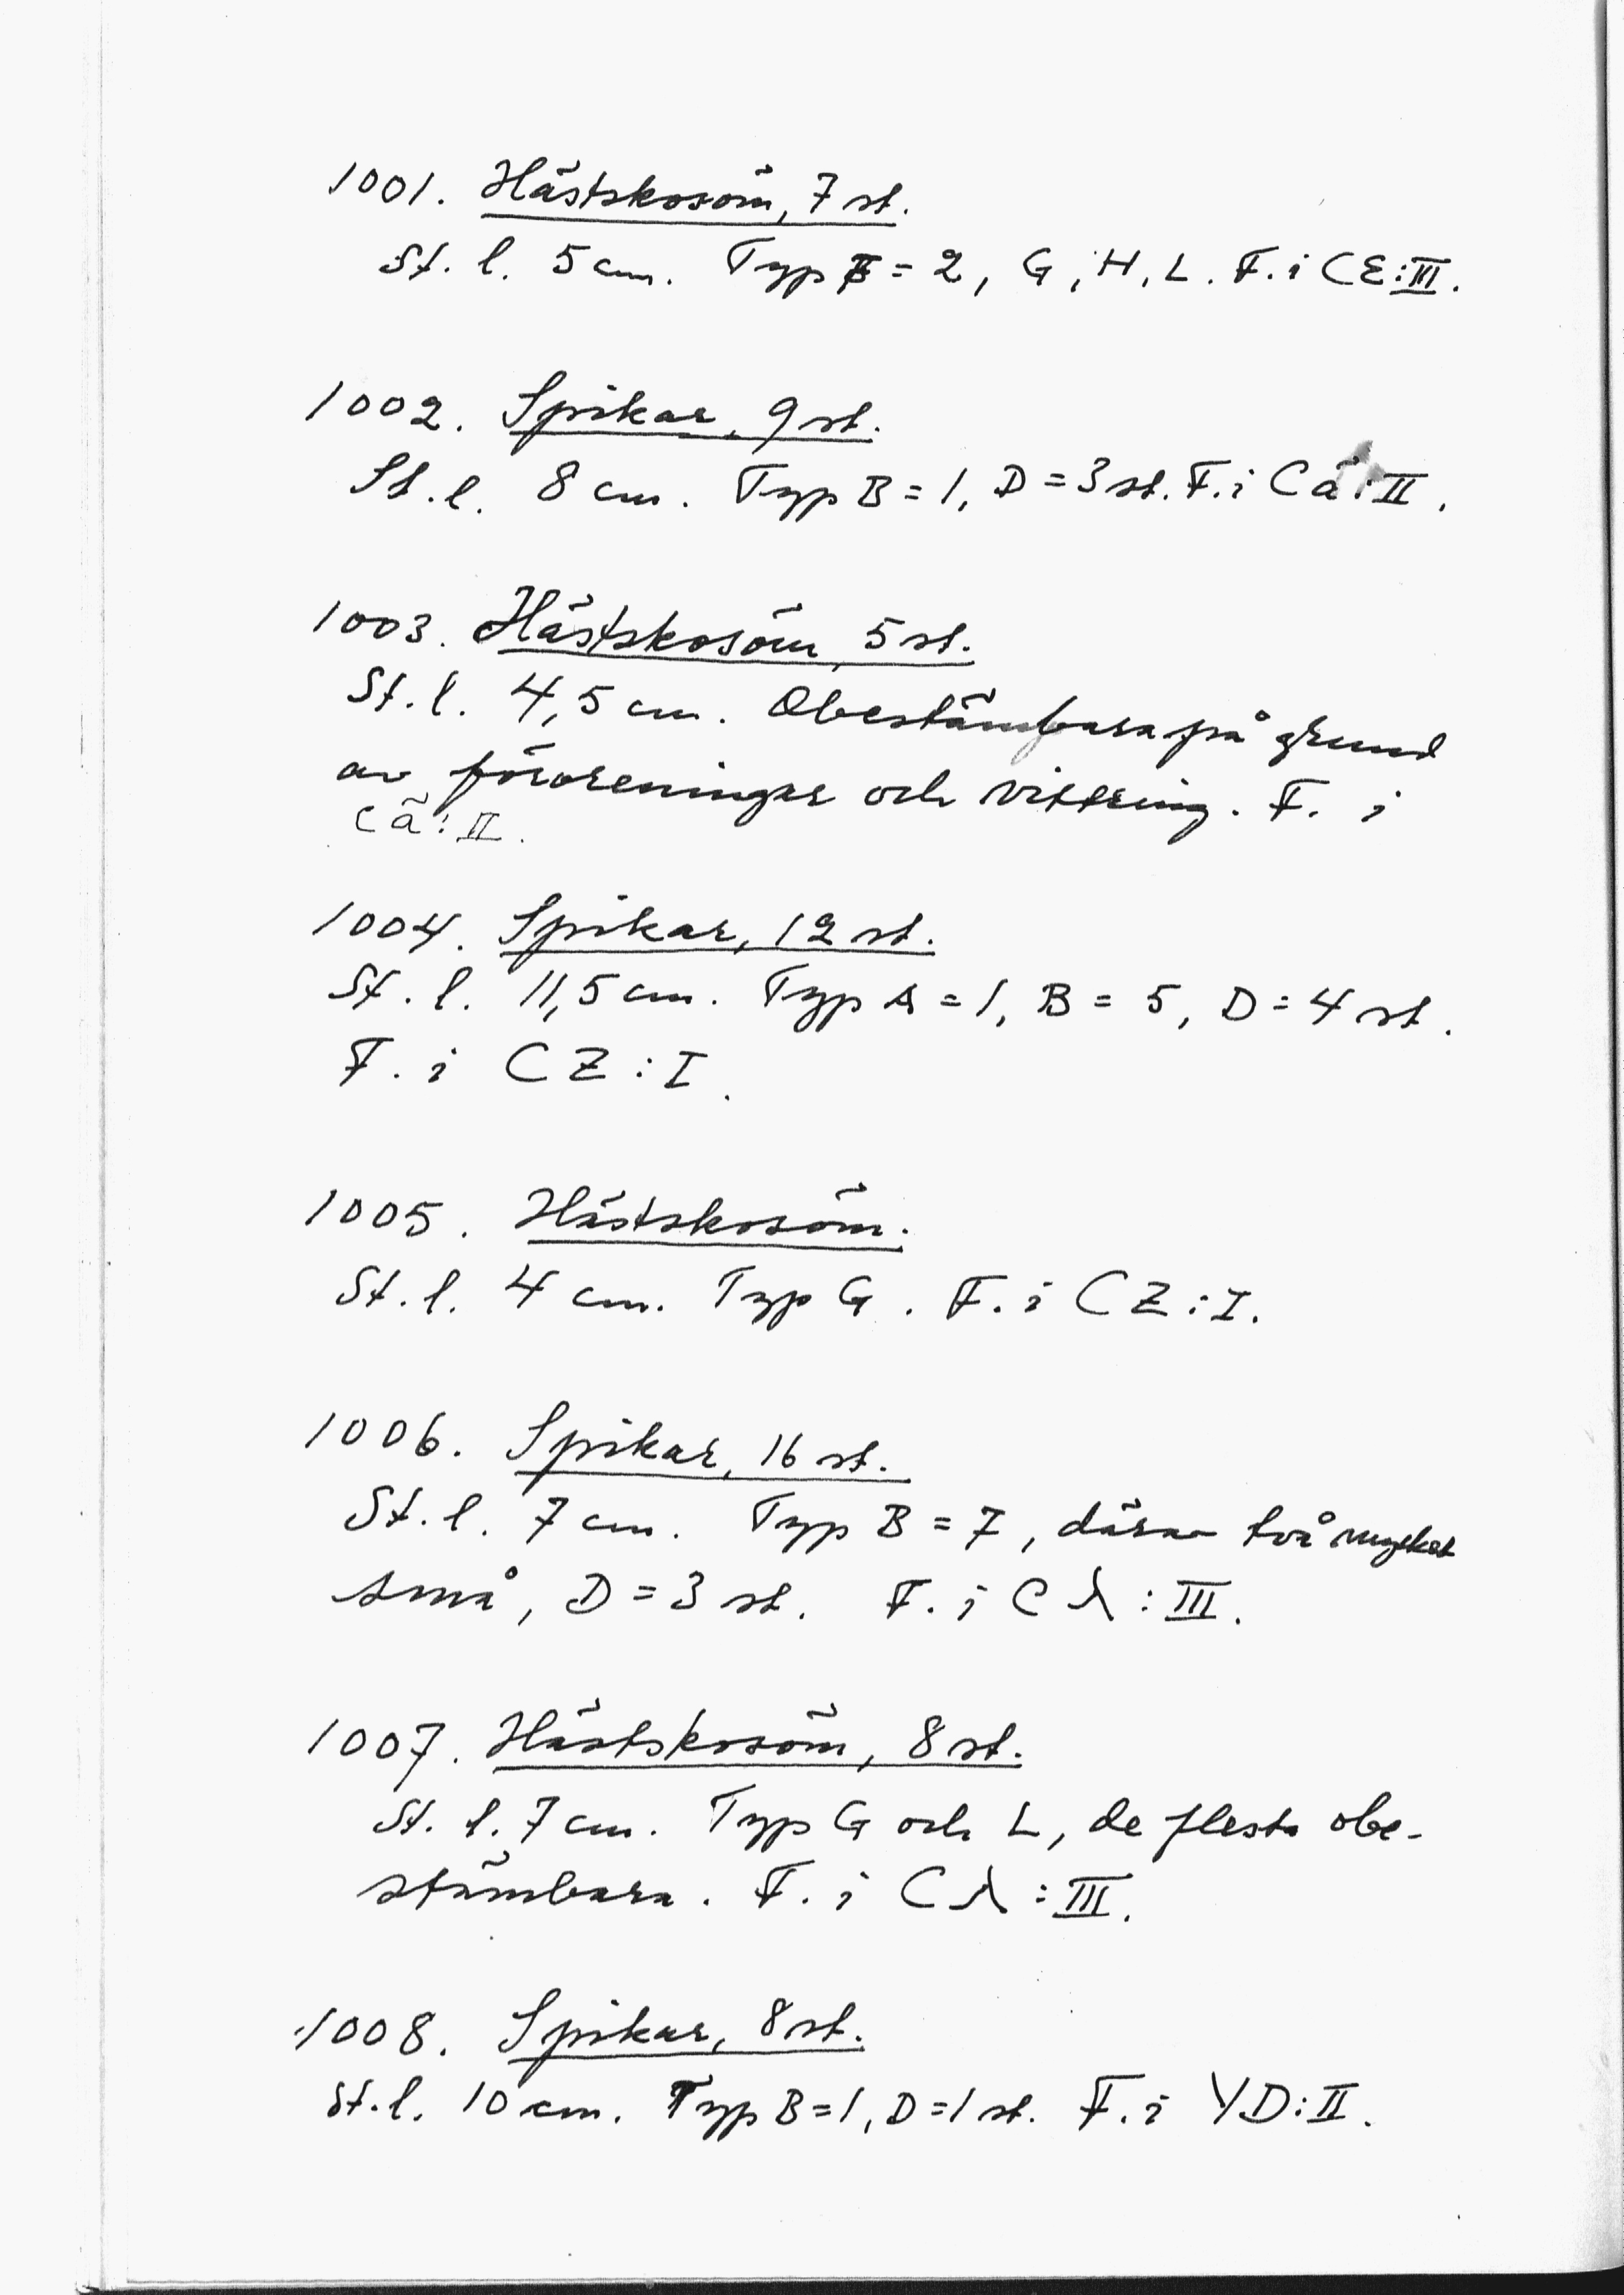 1001. Hästskosöm, 7 st.
St. l. 5 cm. Typ F = 2, G, H, L. F. i CE:III.
1002. Spikar, 9 st.
St. l. 8 cm. Typ B = 1, D = 3 st. F. i Cä:II.
1003. Hästskosöm, 5 st.
St. l. 4,5 cm. Obestämbara på grund
av föroreningar och vittring. F. i
Cä:II.
1004. Spikar, 12 st.
St. l. 11,5 cm. Typ A = 1, B = 5, D = 4 st.
F. i CZ:I.
1005. Hästskosöm.
St. l. 4 cm. Typ G. F. i CZ:I.
1006. Spikar, 16 st.
St. l. 7 cm. Typ B = 7, därav två mycket
små, D = 3 st. F. i Cλ:III.
1007. Hästskosöm, 8 st.
St. l. 7 cm. Typ G och L, de flesta obe-
stämbara. F. i Cλ:III.
1008. Spikar, 8 st.
St. l. 10 cm. Typ B=1, D=1 st. F. i YD:II.